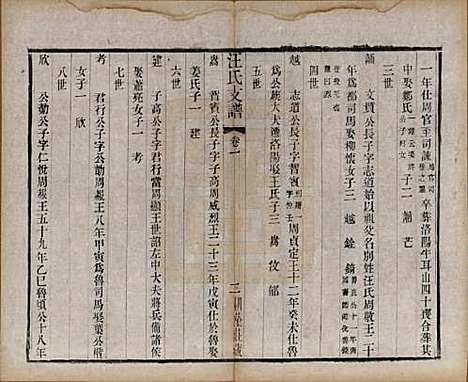 一年仕周官至司諫卒葬洛陽牛耳山四十喪合葬其
中娶鄭氏子二 誦 芒
三世
誦 文賢公長子字志道始以祖父名别姓汪氏周敬王二十
年爲都司馬娶柳恢女子三 越 銓 錡
四世
越 志道公長子字智賓周貞定王十二年癸未仕魯
爲公族大夫遷洛陽娶王氏子三 爲 改 郁
五世
爲 智賓公長子字子高周威烈王二十三年戊寅仕魯娶
汪氏支譜 卷一
姜氏子一 建
六世
建 子高公子字君行當周顯王世詔左中大夫將兵備諸侯
娶蕭宛女子一 考
七世
考 君行公子字公勳周赧王八年甲寅爲魯司馬娶葉公楷
女子一 欣
八世
欣 公勳公子字仁悅周赧王五十九年乙巳魯頃公十八年